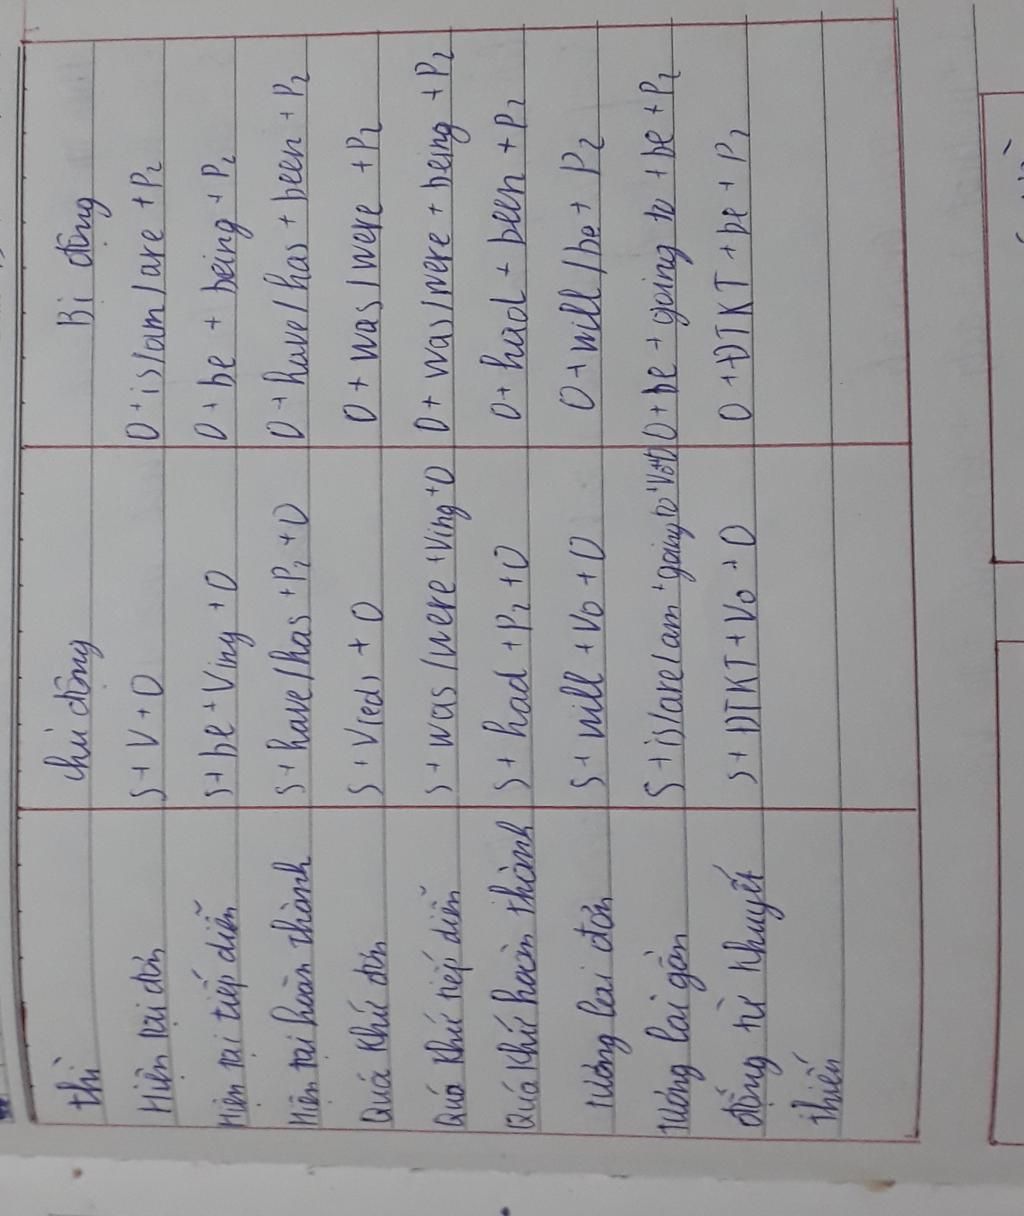 Thì Chủ động Bị động
Hiện tại đơn S + V + O O + is/am/are + P2
Hiện tại tiếp diễn S + be + Ving + O O + be + being + P2
Hiện tại hoàn thành S + have/has + P2 + O O + have/has + been + P2
Quá khứ đơn S + V(ed) + O O + was/were + P2
Quá khứ tiếp diễn S + was/were + Ving + O O + was/were + being + P2
Quá khứ hoàn thành S + had + P2 + O O + had + been + P2
Tương lai đơn S + will + V0 + O O + will/be + P2
Tương lai gần S + is/are/am + going to + V0 + O O + be + going to + be + P2
động từ khuyết S + ĐTKT + V0 + O O + ĐTKT + be + P2
thiếu